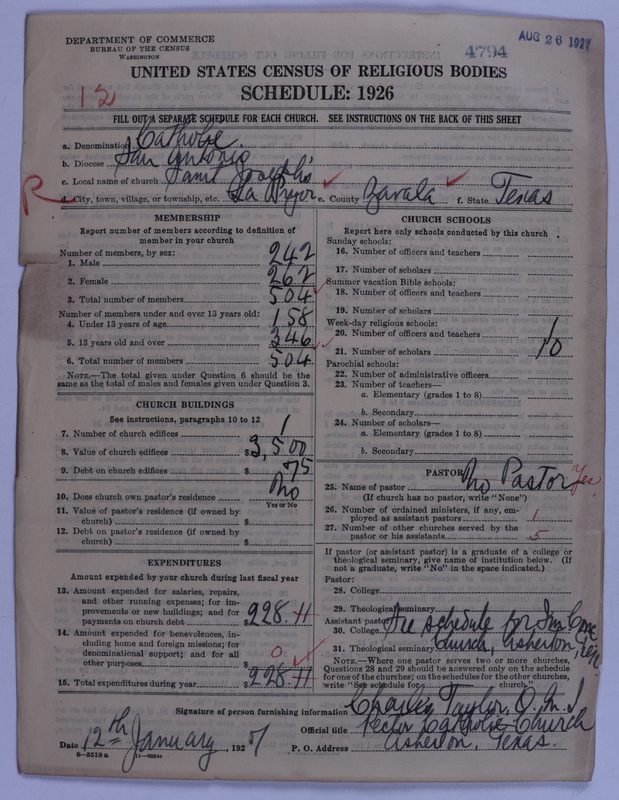 DEPARTMENT OF COMMERCE
BUREAU OF THE CENSUS
WASHINGTON
4794
AUG 26 1927
UNITED STATES CENSUS OF RELIGIOUS BODIES
SCHEDULE: 1926
12
FILL OUT A SEPARATE SCHEDULE FOR EACH CHURCH. SEE INSTRUCTIONS ON THE BACK OF THIS SHEET
a. Denomination Catholic.
b. Diocese San Antonio
c. Local name of church Saint Joseph's
R
d. City, town, village, or township, etc. La Pryor e. County Zavala f. State Texas
MEMBERSHIP
Report number of members according to definition of
member in your church
Number of members, by sex:
1. Male 242
2. Female 262
3. Total number of members 504
Number of members under and over 13 years old:
4. Under 13 years of age 158
5. 13 years old and over 346
6. Total number of members 504
NOTE.—The total given under Question 6 should be the
same as the total of males and females given under Question 3.
CHURCH BUILDINGS
See instructions, paragraphs 10 to 12
7. Number of church edifices 1
8. Value of church edifices $ 3,500
9. Debt on church edifices $ 75
10. Does church own pastor's residence No
Yes or No
11. Value of pastor's residence (if owned by
church) $
12. Debt on pastor's residence (if owned by
church) $
EXPENDITURES
Amount expended by your church during last fiscal year
13. Amount expended for salaries, repairs,
and other running expenses; for im-
provements or new buildings; and for
payments on church debt $ 228.11
14. Amount expended for benevolences, in-
cluding home and foreign missions; for
denominational support; and for all
other purposes 0
15. Total expenditures during year $ 228.11
CHURCH SCHOOLS
Report here only schools conducted by this church.
Sunday schools:
16. Number of officers and teachers
17. Number of scholars
Summer vacation Bible schools:
18. Number of officers and teachers
19. Number of scholars
Week-day religious schools:
20. Number of officers and teachers 1
21. Number of scholars 10
Parochial schools:
22. Number of administrative officers
23. Number of teachers—
a. Elementary (grades 1 to 8)
b. Secondary
24. Number of scholars—
a. Elementary (grades 1 to 8)
b. Secondary
PASTOR
25. Name of pastor No Pastor Yes
(If church has no pastor, write "None")
26. Number of ordained ministers, if any, em-
ployed as assistant pastors 1
27. Number of other churches served by the
pastor or his assistants 5
If pastor (or assistant pastor) is a graduate of a college or
theological seminary, give name of institution below. (If
not a graduate, write "No" in the space indicated.)
Pastor:
28. College
29. Theological seminary
Assistant pastor:
30. College See schedule for Im Conc
31. Theological seminary Church, Asherton, Texas
NOTE.—Where one pastor serves two or more churches,
Questions 28 and 29 should be answered only on the schedule
for one of the churches; on the schedules for the other churches,
write "See schedule for church."
Signature of person furnishing information Charles Taylor, O.M.I.
Official title Rector Catholic Church
Date 12th January, 1927
P. O. Address Asherton, Texas.
8—5518 a